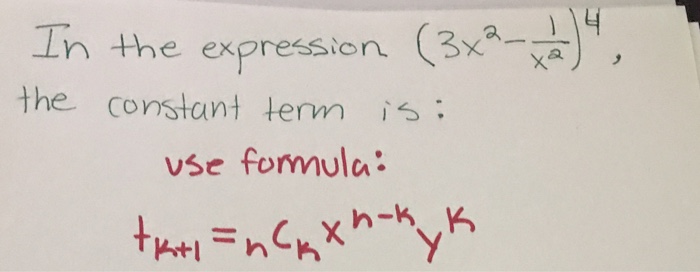 In the expression (3x² - 1/x²)⁴,
the constant term is:
use formula:
t_{k+1} = _nC_k x^{n-k} y^k